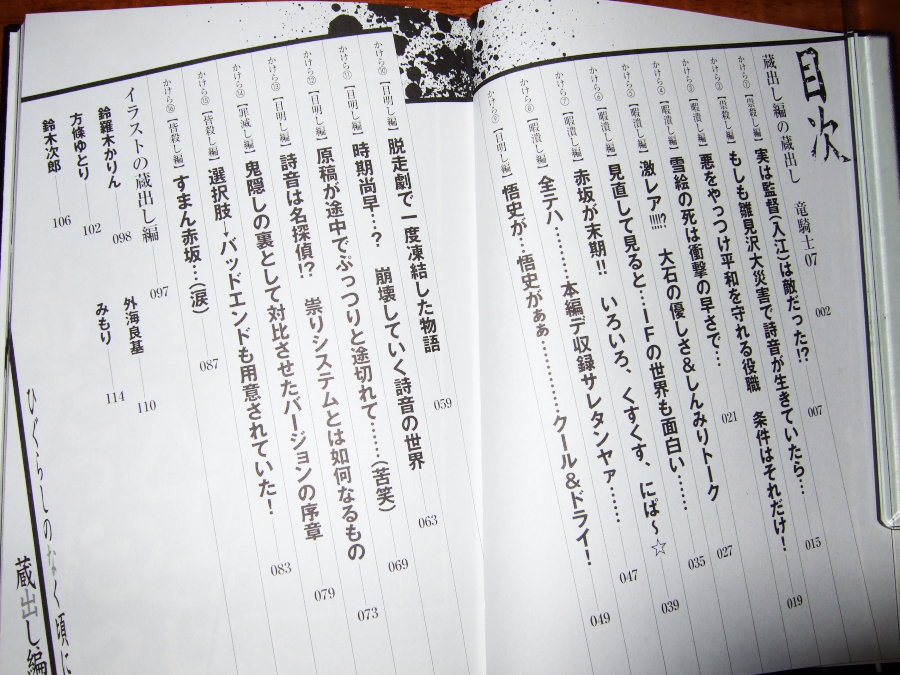 目次
蔵出し編の蔵出し 竜騎士07 002
かけら① 【祟殺し編】 実は監督(入江)は敵だった!? 007
かけら② 【祟殺し編】 もしも雛見沢大災害で詩音が生きていたら… 015
かけら③ 【暇潰し編】 悪をやっつけ平和を守れる役職 条件はそれだけ! 019
かけら④ 【暇潰し編】 雪絵の死は衝撃の早さで… 021
かけら⑤ 【暇潰し編】 激レア!!!!? 大石の優しさ&しんみりトーク 027
かけら⑥ 【暇潰し編】 見直して見ると…IFの世界も面白い…… 035
かけら⑦ 【暇潰し編】 赤坂が末期!! いろいろ、くすくす、にぱ~☆ 039
かけら⑧ 【暇潰し編】 全テハ………本編デ収録サレタンヤァ…… 047
かけら⑨ 【目明し編】 悟史が…悟史がぁぁ…………クール&ドライ! 049
かけら⑩ 【目明し編】 脱走劇で一度凍結した物語 059
かけら⑪ 【目明し編】 時期尚早…? 崩壊していく詩音の世界 063
かけら⑫ 【目明し編】 原稿が途中でぷっつりと途切れて……(苦笑) 069
かけら⑬ 【目明し編】 詩音は名探偵!? 祟りシステムとは如何なるもの 073
かけら⑭ 【罪滅し編】 鬼隠しの裏として対比させたバージョンの序章 079
かけら⑮ 【皆殺し編】 選択肢→バッドエンドも用意されていた! 083
かけら⑯ 【皆殺し編】 すまん赤坂…(涙) 087
イラストの蔵出し編 097
鈴羅木かりん 098
方條ゆとり 102
鈴木次郎 106
外海良基 110
みもり 114
ひぐらしのなく頃に
蔵出し編